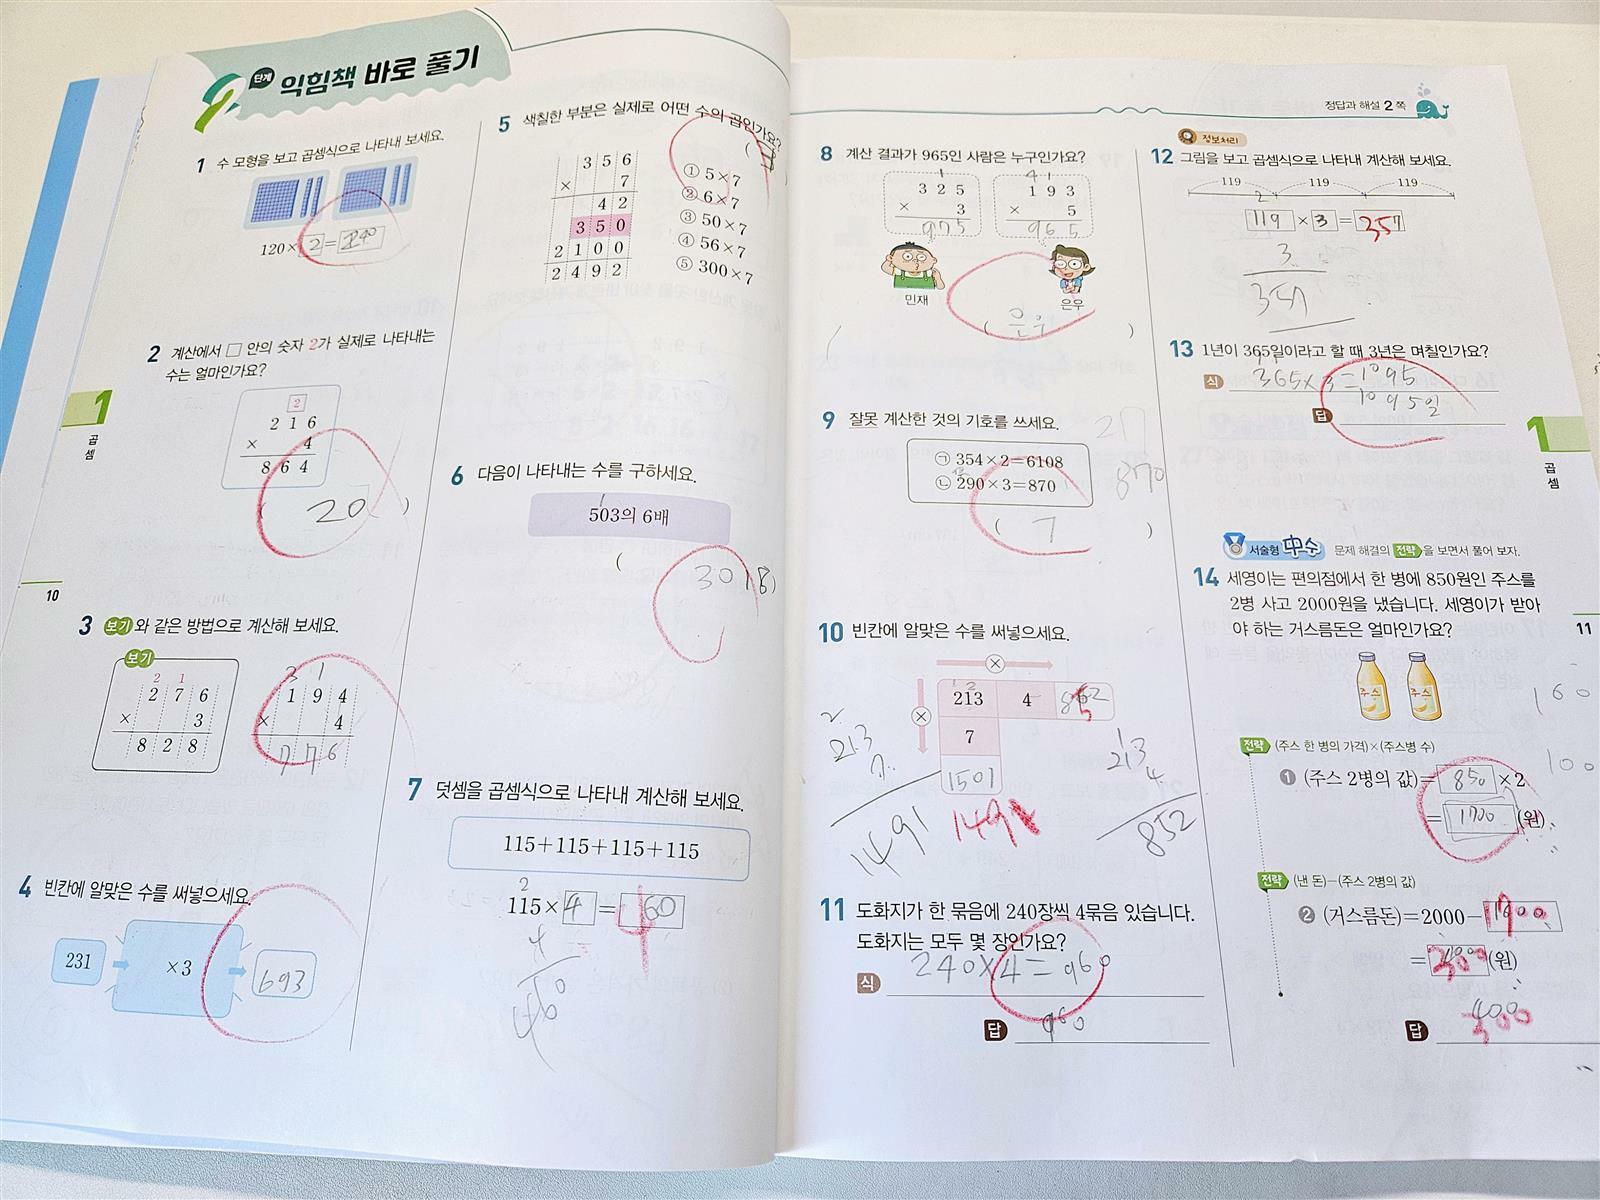 2 단계 익힘책 바로 풀기
1 수 모형을 보고 곱셈식으로 나타내 보세요.
120× 2 = 240
2 계산에서 □ 안의 숫자 2가 실제로 나타내는
수는 얼마인가요?
2
2 1 6
× 4
8 6 4
( 20 )
3 보기와 같은 방법으로 계산해 보세요.
보기
2 1
2 7 6
× 3
8 2 8
3 1
1 9 4
× 4
7 7 6
4 빈칸에 알맞은 수를 써넣으세요.
231 ×3 693
1
곱
셈
10
5 색칠한 부분은 실제로 어떤 수의 곱인가요?
3 5 6
× 7
4 2
3 5 0
2 1 0 0
2 4 9 2
① 5×7
② 6×7
③ 50×7
④ 56×7
⑤ 300×7
6 다음이 나타내는 수를 구하세요.
1
503의 6배
( 3018 )
7 덧셈을 곱셈식으로 나타내 계산해 보세요.
115+115+115+115
2
115× 4 = 460
4
460
정답과 해설 2쪽
8 계산 결과가 965인 사람은 누구인가요?
1
3 2 5
× 3
9 7 5
4 1
1 9 3
× 5
9 6 5
민재 은우
( 은우 )
9 잘못 계산한 것의 기호를 쓰세요.
㉠ 354×2=6108
㉡ 290×3=870
870
( ㄱ )
10 빈칸에 알맞은 수를 써넣으세요.
×
× 213 4
7
1501
1491
2
213
7
1491
1
213
4
852
11 도화지가 한 묶음에 240장씩 4묶음 있습니다.
도화지는 모두 몇 장인가요?
식 240×4=960
답 960
정보처리
12 그림을 보고 곱셈식으로 나타내 계산해 보세요.
119 119 119
2
119 × 3 = 357
3
357
13 1년이 365일이라고 할 때 3년은 며칠인가요?
식 365×3=1095
답 1095일
서술형 中수 문제 해결의 전략 을 보면서 풀어 보자.
14 세영이는 편의점에서 한 병에 850원인 주스를
2병 사고 2000원을 냈습니다. 세영이가 받아
야 하는 거스름돈은 얼마인가요?
주스 주스
전략 (주스 한 병의 가격)×(주스병 수)
❶ (주스 2병의 값)= 850 ×2
= 1700 (원)
전략 (낸 돈)−(주스 2병의 값)
❷ (거스름돈)=2000− 1700
= 300 (원)
답 300
160
100
1
곱
셈
11